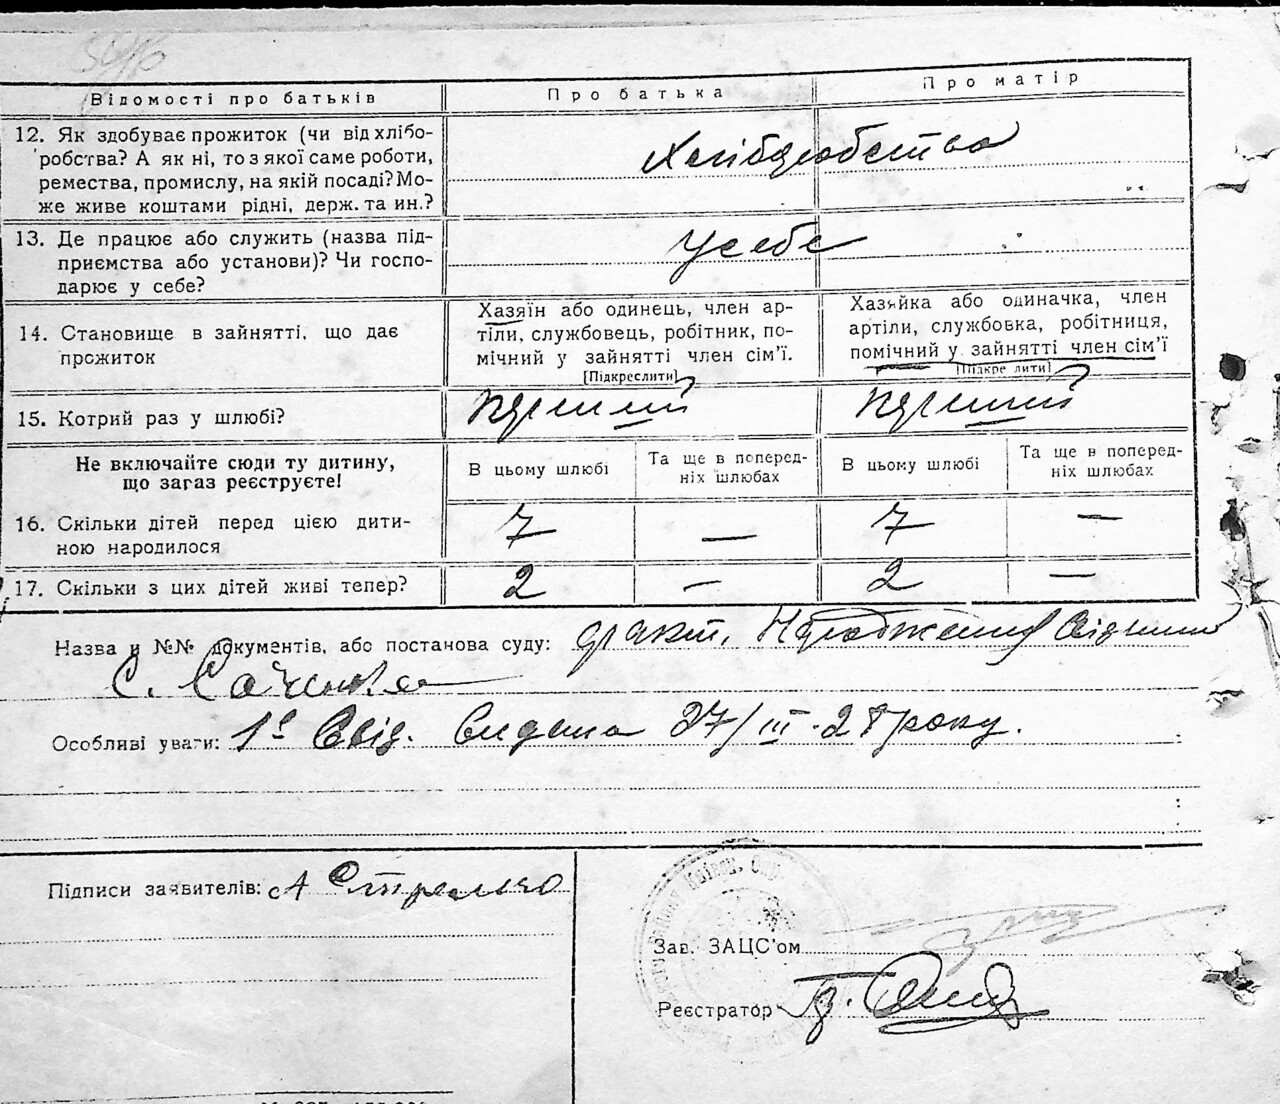 Відомості про батьків
Про батька
Про матір
12. Як здобуває прожиток (чи від хлібо-
робства? А як ні, то з якої саме роботи,
ремества, промислу, на якій посаді? Мо-
же живе коштами рідні, держ. та ин.?
Хліборобство
13. Де працює або служить (назва під-
приємства або установи)? Чи госпо-
дарює у себе?
У себе
14. Становище в зайнятті, що дає
прожиток
Хазяїн або одинець, член ар-
тіли, службовець, робітник, по-
мічний у зайнятті член сім'ї.
[Підкреслити]
Хазяйка або одиначка, член
артіли, службовка, робітниця,
помічний у зайнятті член сім'ї
[Підкреслити]
15. Котрий раз у шлюбі?
перший
перший
Не включайте сюди ту дитину,
що загаз реєструєте!
В цьому шлюбі
Та ще в поперед-
ніх шлюбах
В цьому шлюбі
Та ще в поперед-
ніх шлюбах
16. Скільки дітей перед цією дити-
ною народилося
7 — 7 —
17. Скільки з цих дітей живі тепер?
2 — 2 —
Назва и №№ документів, або постанова суду: факт. Народження
С.
Особливі уваги: Свід. видана 27/III-28 року.
Підписи заявителів:
Київськ. Окр.
Зав. ЗАЦС'ом
Реєстратор